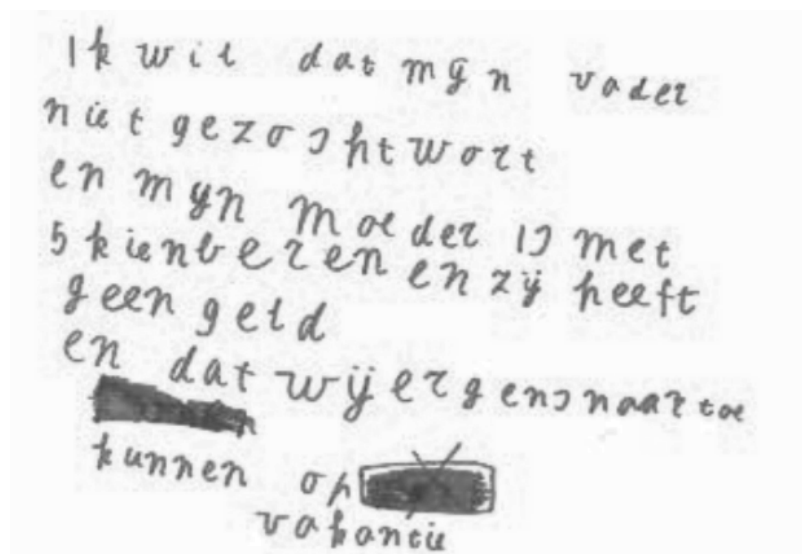 Ik wil dat mijn vader
niet gezocht wort
en mijn moeder is met
5 kienberen en zij heeft
geen geld
en dat wij ergens naar toe
kunnen op
vakantie